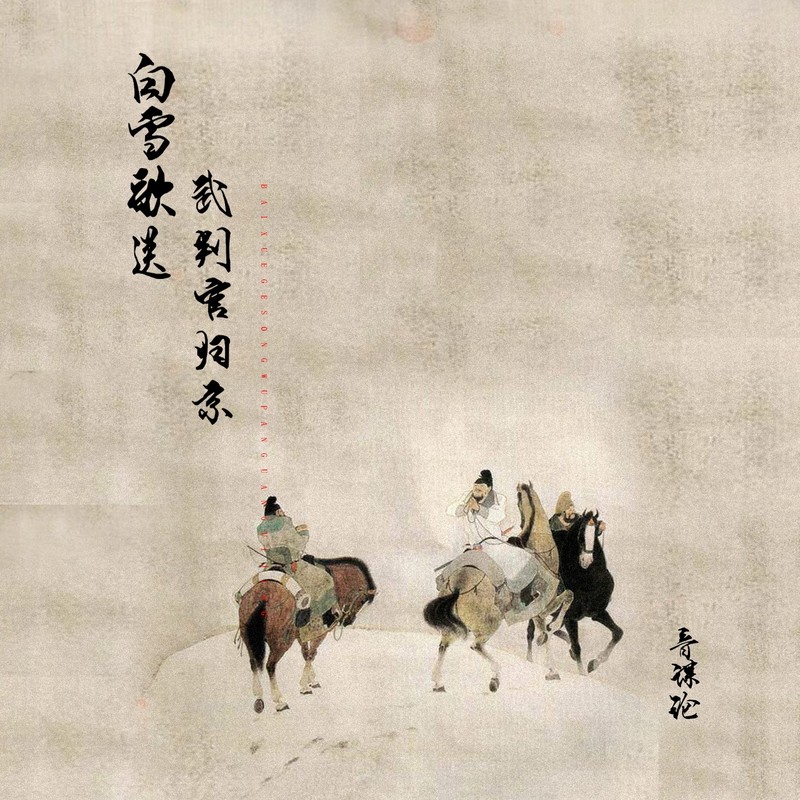 白雪歌送
武判官归京
BAIXUEGESONGWUPANGUAN
音谋论